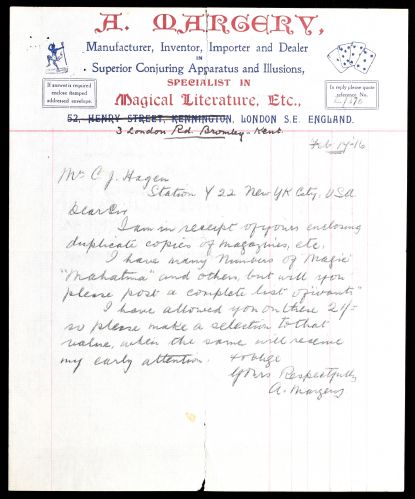 A. MARGERY,
Manufacturer, Inventor, Importer and Dealer
IN
Superior Conjuring Apparatus and Illusions,
SPECIALIST IN
Magical Literature, Etc.,
If answer is required
enclose stamped
addressed envelope.
In reply please quote
reference No.
52, HENRY STREET, KENNINGTON, LONDON S.E. ENGLAND.
3 London Rd. Bromley - Kent.
Feb 17-16
Mr C. J. Hagen
Station Y 22 New Yk City, USA
Dear Sir
I am in receipt of yours enclosing
duplicate copies of magazines, etc.
I have many Numbers of Magic
"Mahatma" and others, but will you
please post a complete list of "wants"
I have allowed you on these 2/-
so please make a selection to that
value, when the same will receive
my early attention. & oblige
Yours Respectfully
A. Margery